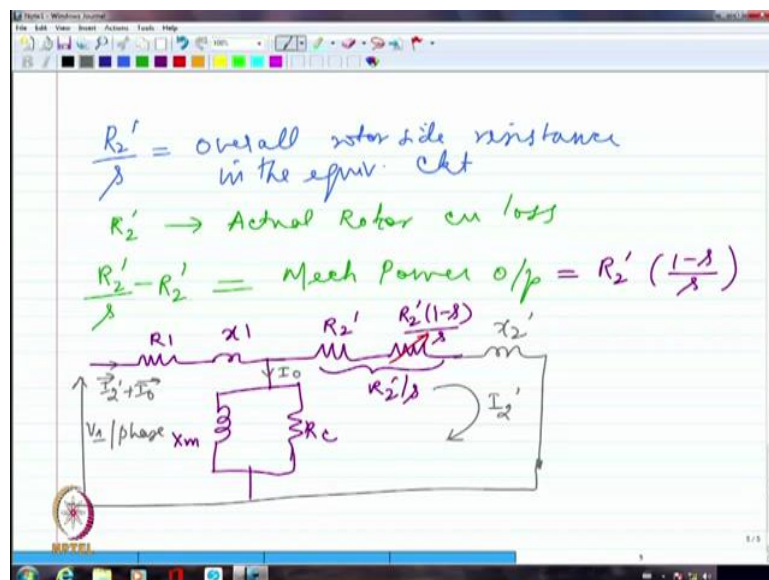 Note1 - Windows Journal
File Edit View Insert Actions Tools Help
100%
B I
R2'/s = overall rotor side resistance
in the equiv. ckt
R2' → Actual Rotor cu loss
R2'/s - R2' = Mech Power o/p = R2' (1-s/s)
R1 x1 R2' R2'(1-s)/s x2'
I2'+I0 I0 R2'/s I2'
V1/phase Xm Rc
NPTEL
5/5